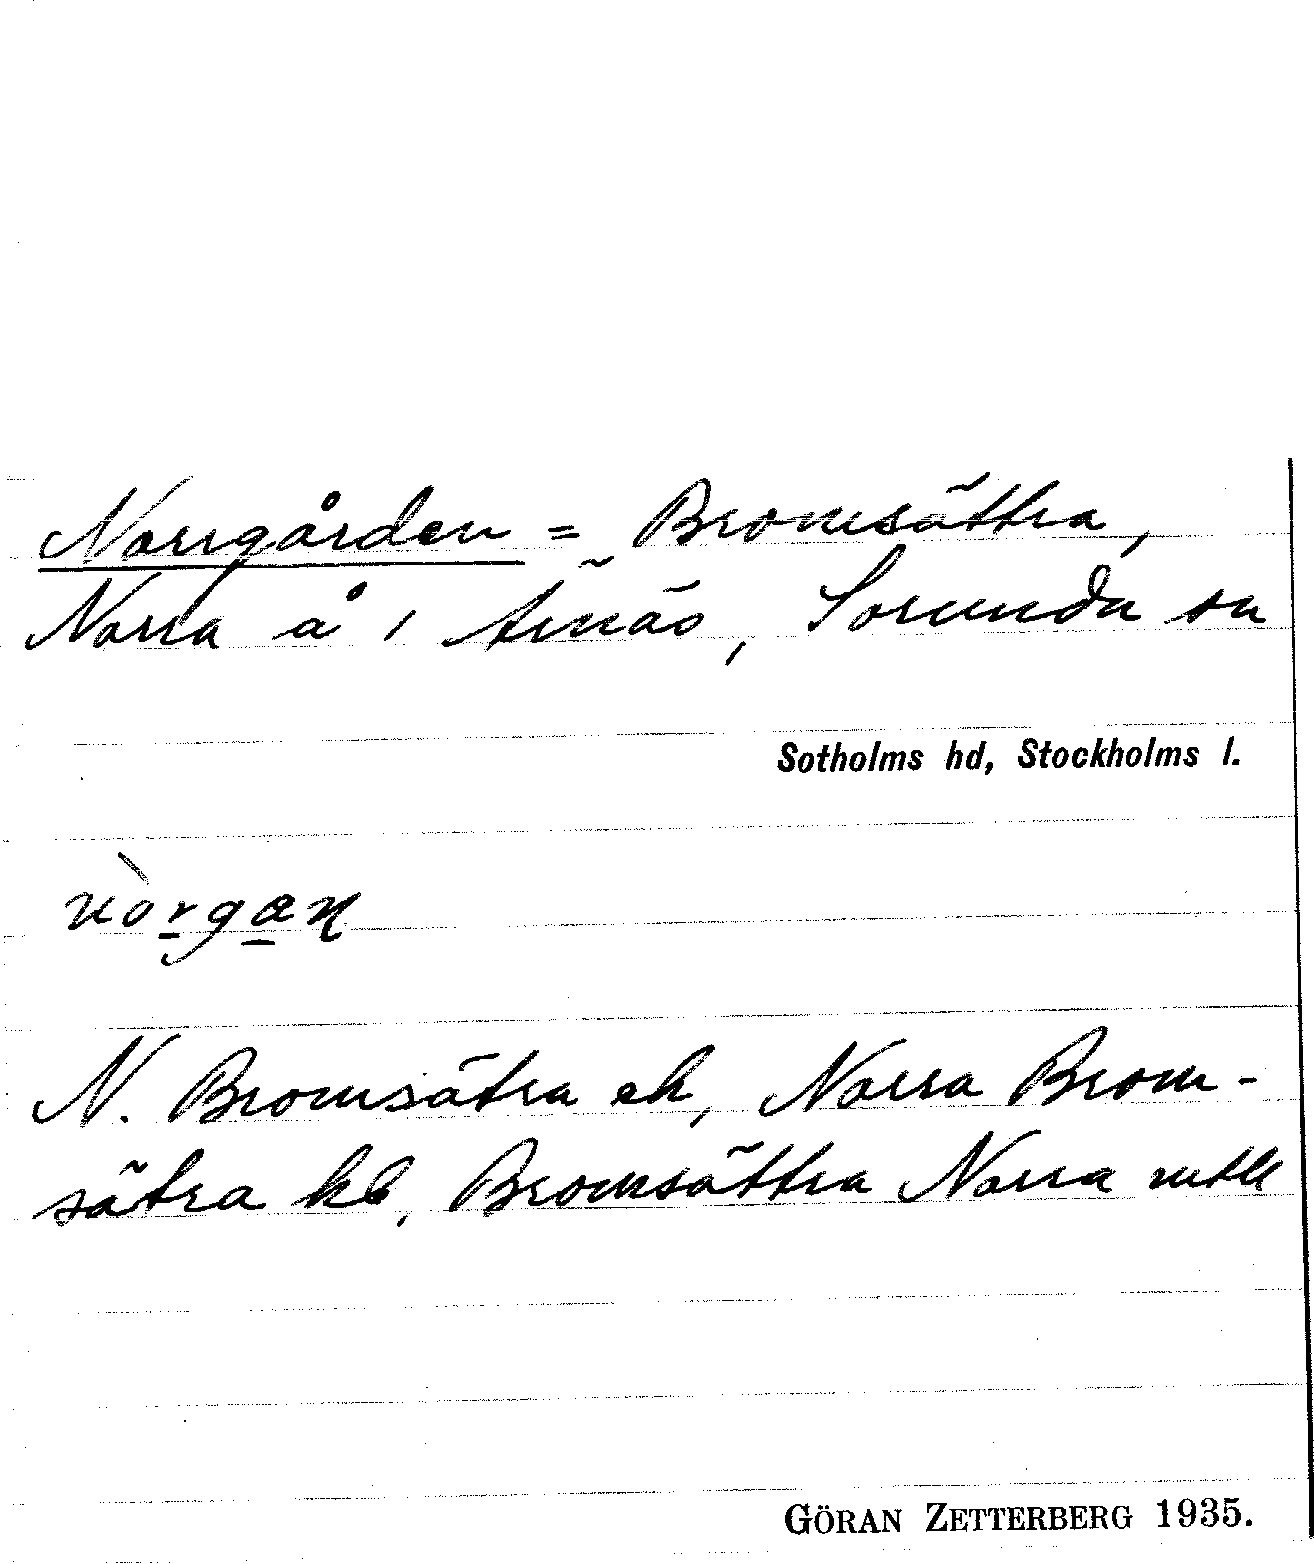 Norrgården = Bromsättra,
Norra å i Ärnäs, Sorunda sn
Sotholms hd, Stockholms l.
nòrgan
N. Bromsätra ek, Norra Brom-
sätra kb, Bromsättra Norra mtl
GÖRAN ZETTERBERG 1935.